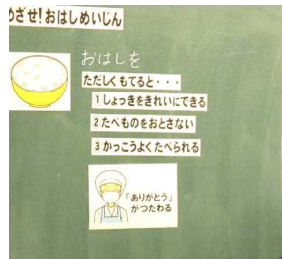 めざせ!おはしめいじん
おはしを
ただしくもてると・・・
1 しょっきをきれいにできる
2 たべものをおとさない
3 かっこうよくたべられる
「ありがとう」
がつたわる